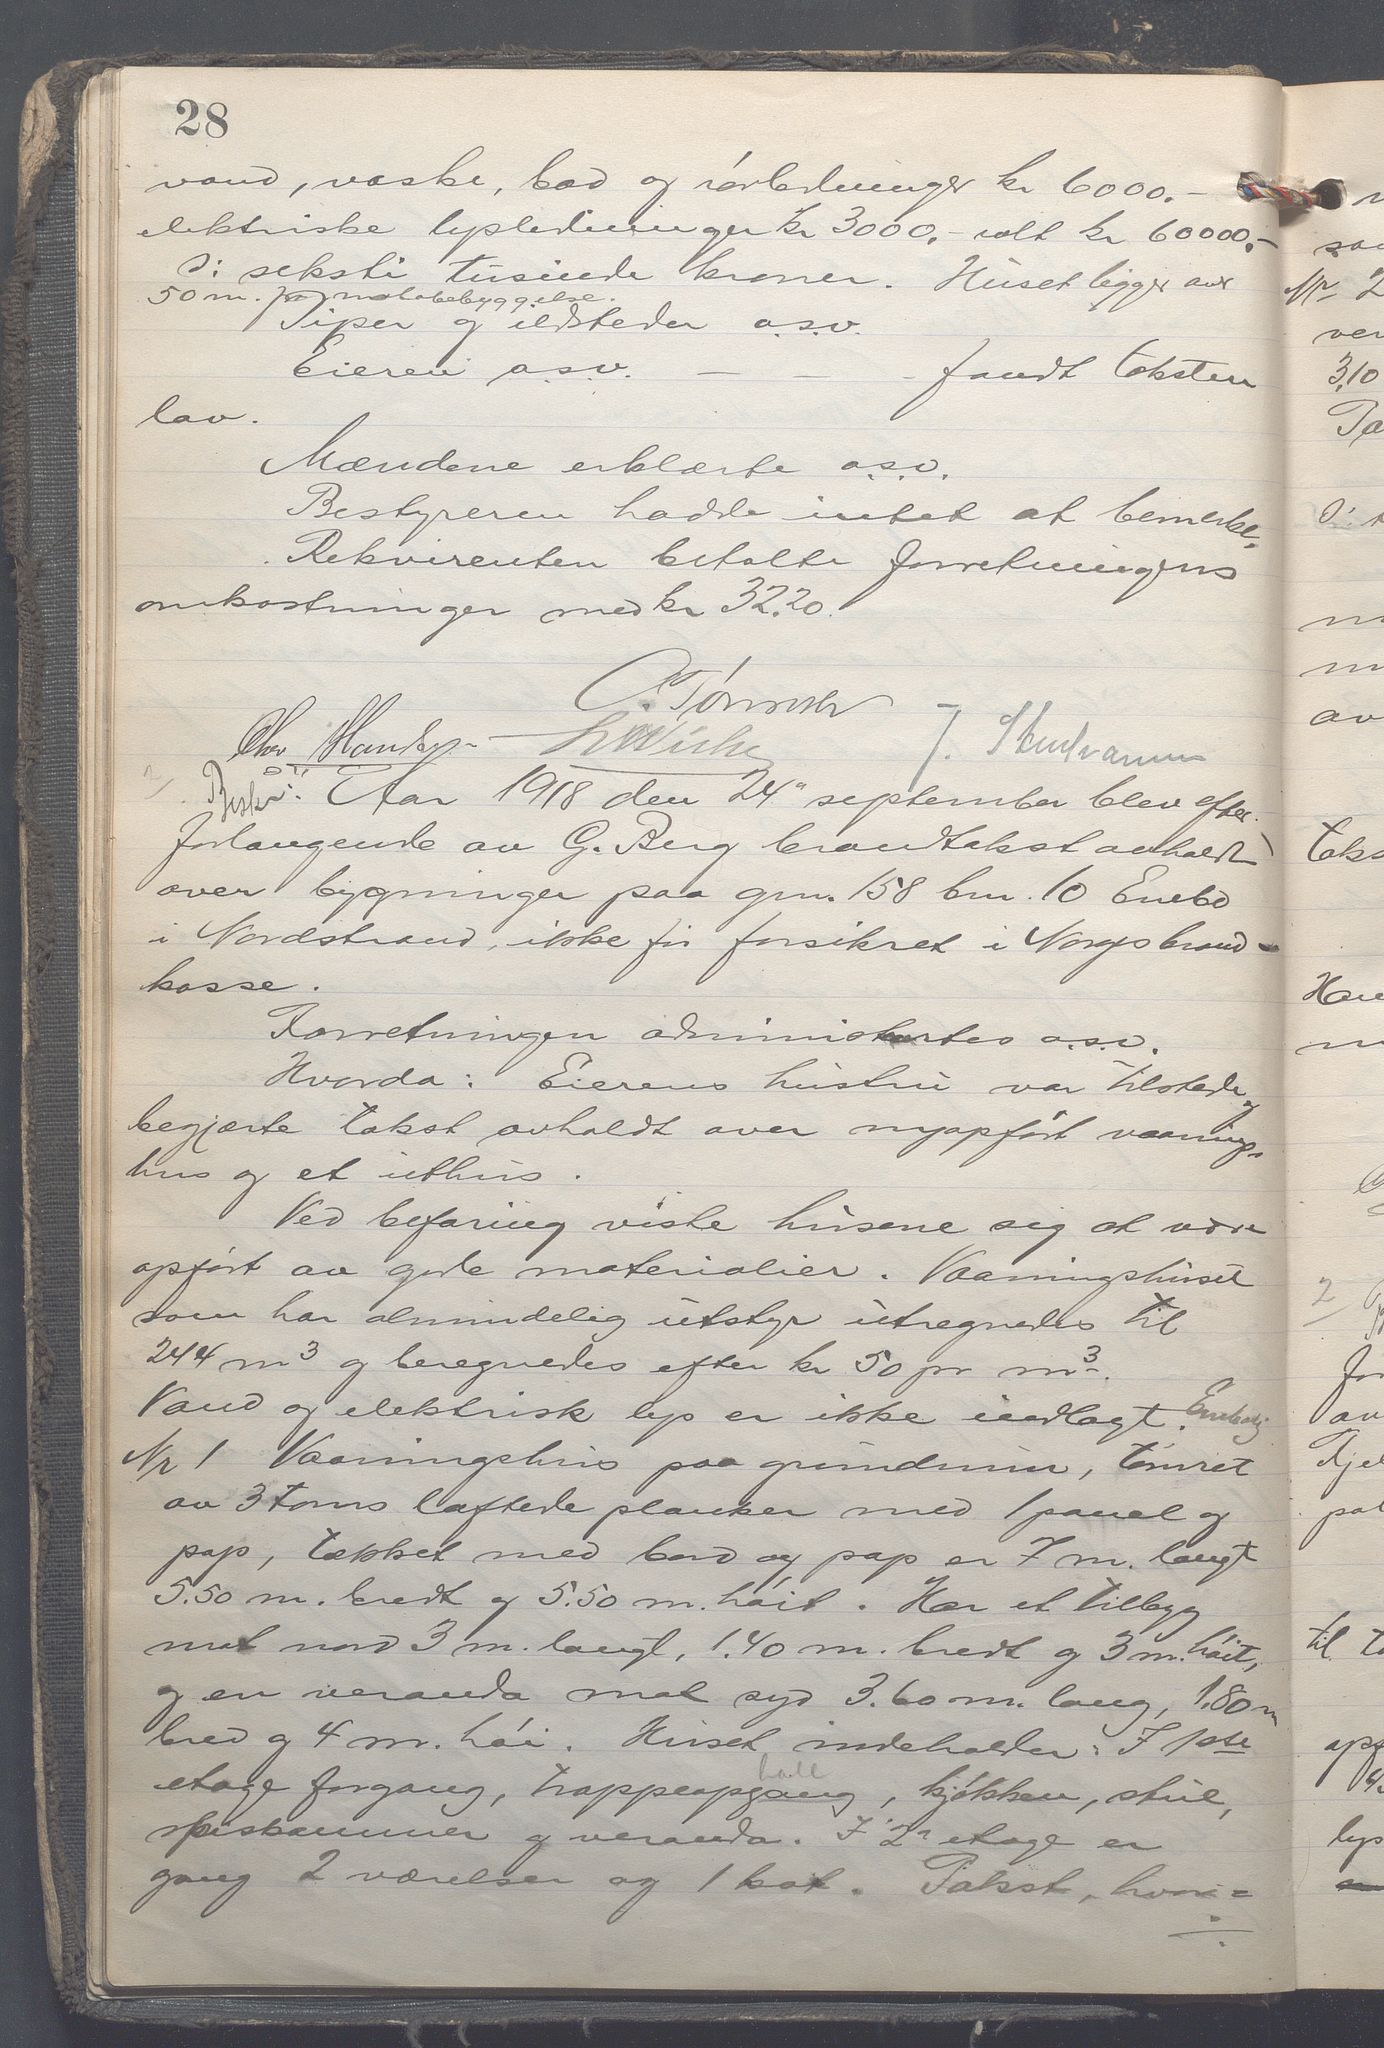 28
vand, vaske, bad og rørledninger kr 6000.-
elektriske lysledninger kr 3000,- ialt kr 60000.-
D: seksti tusinde kroner. Huset ligger over
50 m. fra nabobebyggelse.
Piper og ildsteder o.s.v.
Eieren o.s.v. — — fandt taksten
lav.
Mændene erklærte o.s.v.
Bestyreren hadde intet at bemerke.
Rekvirenten betalte forretningens
omkostninger med kr 32.20.
Chr
2/ Aar 1918 den 24de september blev efter
forlangende av G. Berg brandtakst avholdt
over bygninger paa grn. 158 brn. 10 Enebo
i Nordstrand, ikke før forsikret i Norges brand-
kasse.
Forretningen administertes o.s.v.
Hvorda: Eierens hustru var tilstede og
begjærte takst avholdt over nyopført vaanings-
hus og et uthus.
Ved befaring viste husene sig at være
opført av gode materialier. Vaaningshuset
som har almindelig utstyr utregnedes til
244 m³ og beregnedes efter kr 50 pr m³.
Vand og elektrisk lys er ikke indlagt.
Nr 1 Vaaningshus paa grundmur, tømret
av 3 toms laftede planker med 1 panel og
pap, tækket med bord og pap er 7 m. langt
5.50 m. bredt og 5.50 m. høit. Har et tilbygg
mot nord 3 m. langt, 1.40 m. bredt og 3 m. høit,
og en veranda mot syd 3.60 m. lang, 1.80 m
bred og 4 m. høi. Huset indeholder: I 1ste
etage forgang, trappeopgang, hall, kjøkken, stue,
spiskammer og veranda. I 2n etage er
gang 2 værelser og 1 kot. Takst, hvori=